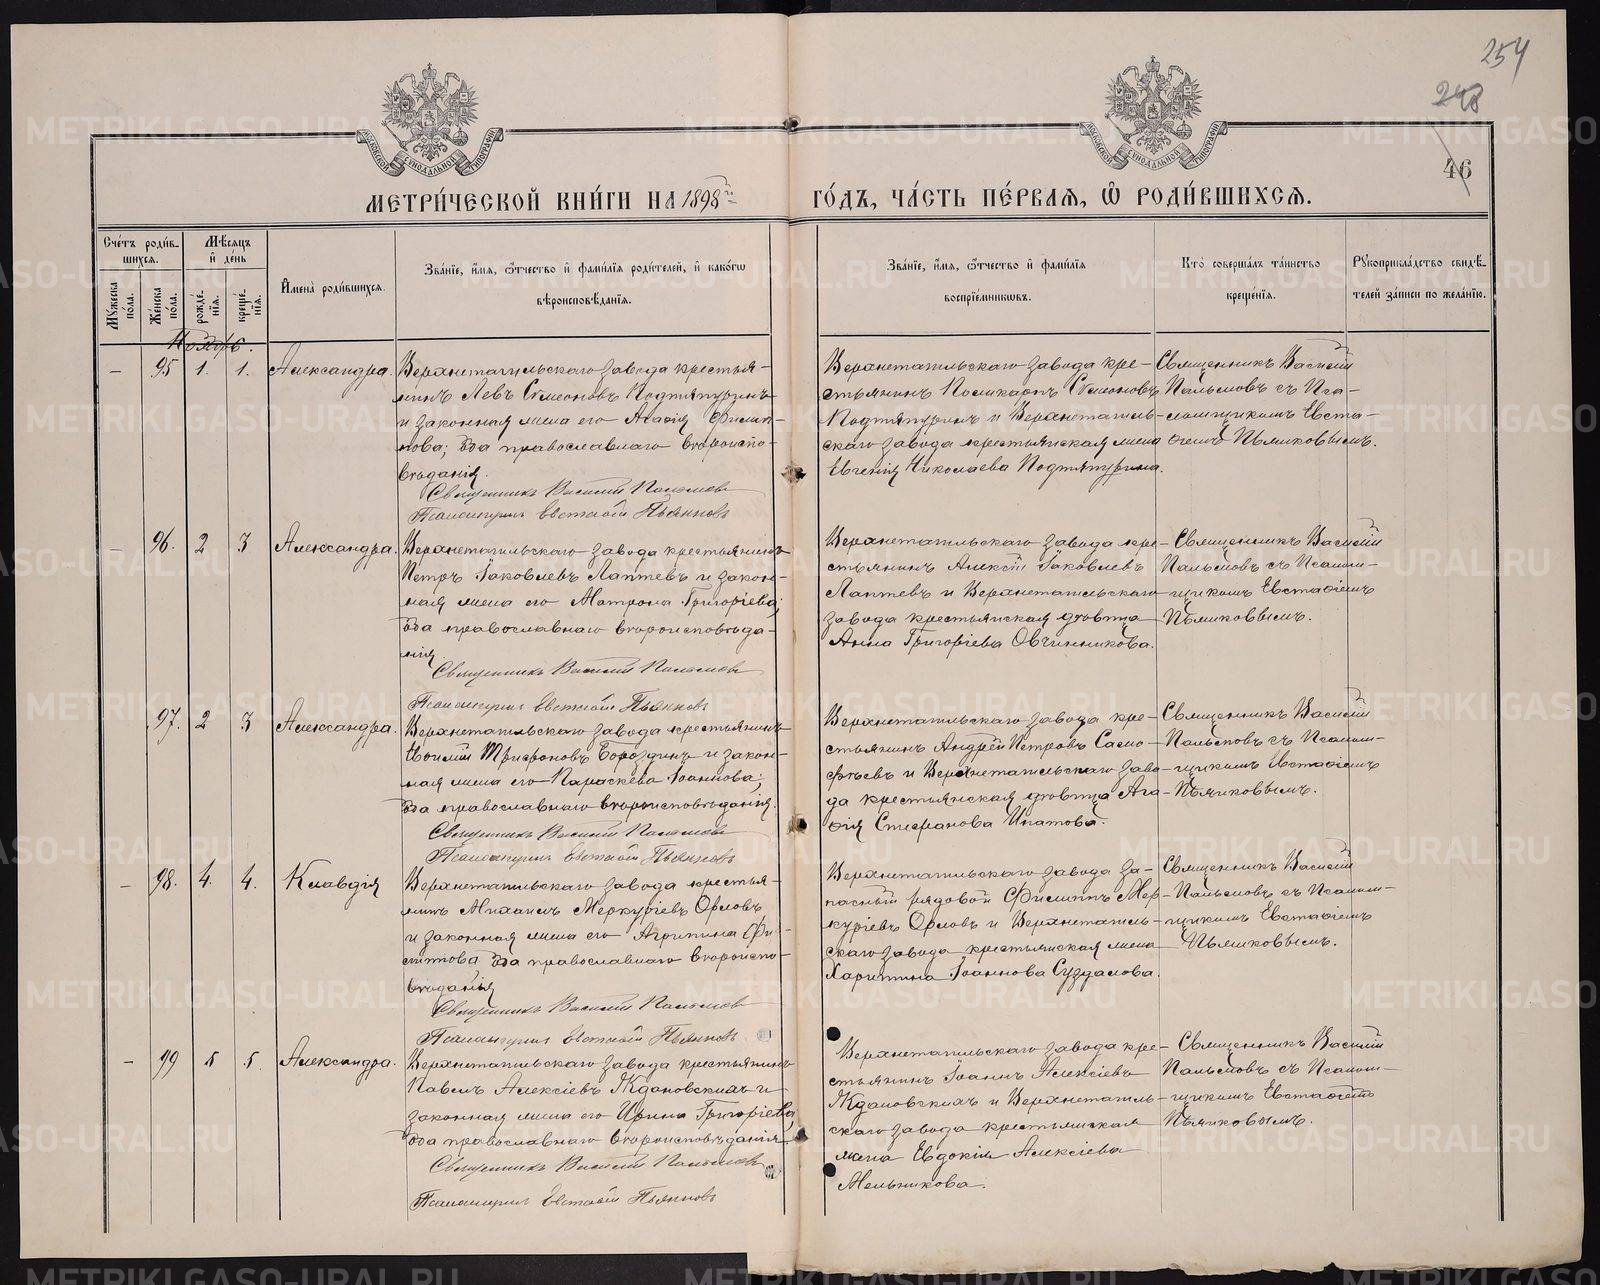 254
248
46
МОСКОВСКОЙ СѴНОДАЛЬНОЙ ТИПОГРАФІИ
МОСКОВСКОЙ СѴНОДАЛЬНОЙ ТИПОГРАФІИ
МЕТРИ́ЧЕСКОЙ КНИ́ГИ НА 1898й ГО́ДЪ, ЧА́СТЬ ПЕ́РВАЯ, Ѡ РОДИ́ВШИХСЯ.
Сче́тъ роди́в-
шихся.
Мѣсяцъ
и де́нь
Мꙋжеска по́ла.
Же́нска по́ла.
рожде́нїя.
креще́нїя.
Имена̀ роди́вшихся.
Зва́нїе, и́мя, ѻ́тчество и фами́лїя роди́телей, и како́гѡ
вѣроисповѣ́данїя.
Зва́нїе, и́мя, ѻ́тчество и фами́лїя
воспрїе́мниковъ.
Кто̀ соверша́лъ та́инство
креще́нїя.
Рꙋкоприкла́дство свидѣ́-
телей за́писи по жела́нїю.
Ноябрь.
— 95 1. 1. Александра.
Верхнетагильскаго завода крестья-
нинъ Левъ Сѵмеоновъ Подтяпуринъ
и законная жена его Агафія Филип-
пова; оба православнаго вѣроиспо-
вѣданія.
Священникъ Василій Пальмовъ
Псаломщикъ Евстафій Пьянковъ
Верхнетагильскаго завода кре-
стьянинъ Поликарпъ Сѵмеоновъ
Подтяпуринъ и Верхнетагиль-
скаго завода крестьянская жена
Евгенія Николаева Подтяпурина.
Священникъ Василій
Пальмовъ съ Пса-
ломщикомъ Евста-
фіемъ Пьянковымъ.
— 96. 2 3 Александра.
Верхнетагильскаго завода крестьянинъ
Петръ Іаковлевъ Лаптевъ и закон-
ная жена его Матрона Григоріева;
оба православнаго вѣроисповѣда-
нія.
Священникъ Василій Пальмовъ
Псаломщикъ Евстафій Пьянковъ
Верхнетагильскаго завода кре-
стьянинъ Алексій Іаковлевъ
Лаптевъ и Верхнетагильскаго
завода крестьянская дѣвица
Анна Григоріева Овчинникова.
Священникъ Василій
Пальмовъ съ Псалом-
щикомъ Евстафіемъ
Пьянковымъ.
97. 2 3 Александра.
Верхнетагильскаго завода крестьянинъ
Трифоновъ Бороздинъ и закон-
ная жена его Параскева Іоаннова;
оба православнаго вѣроисповѣданія.
Священникъ Василій Пальмовъ
Псаломщикъ Евстафій Пьянковъ
Верхнетагильскаго завода кре-
стьянинъ Андрей Петровъ Сало-
и Верхнетагильскаго заво-
да крестьянская дѣвица Ага-
фія Стефанова Ипатова.
Священникъ Василій
Пальмовъ съ Псалом-
щикомъ Евстафіемъ
Пьянковымъ.
— 98. 4. 4. Клавдія
Верхнетагильскаго завода крестья-
нинъ Михаилъ Меркуріевъ Орловъ
и законная жена его Агрипина Фи-
липпова, оба православнаго вѣроиспо-
вѣданія
Священникъ Василій Пальмовъ
Псаломщикъ Евстафій Пьянковъ
Верхнетагильскаго завода за-
пасный рядовой Филиппъ Мер-
куріевъ Орловъ и Верхнетагиль-
скаго завода крестьянская жена
Харитина Іоаннова Суздалова.
Священникъ Василій
Пальмовъ съ Псалом-
щикомъ Евстафіемъ
Пьянковымъ.
— 99 5 5. Александра.
Верхнетагильскаго завода крестьянинъ
Павелъ Алексіевъ Ждановскихъ и
законная жена его Ирина Григоріева,
оба православнаго вѣроисповѣданія.
Священникъ Василій Пальмовъ
Псаломщикъ Евстафій Пьянковъ
Верхнетагильскаго завода кре-
стьянинъ Іоаннъ Алексіевъ
Ждановскихъ и Верхнетагиль-
скаго завода крестьянская
жена Евдокія Алексіева
Мельникова.
Священникъ Василій
Пальмовъ съ Псалом-
щикомъ Евстафіемъ
Пьянковымъ.
METRIKI.GASO-URAL.RU